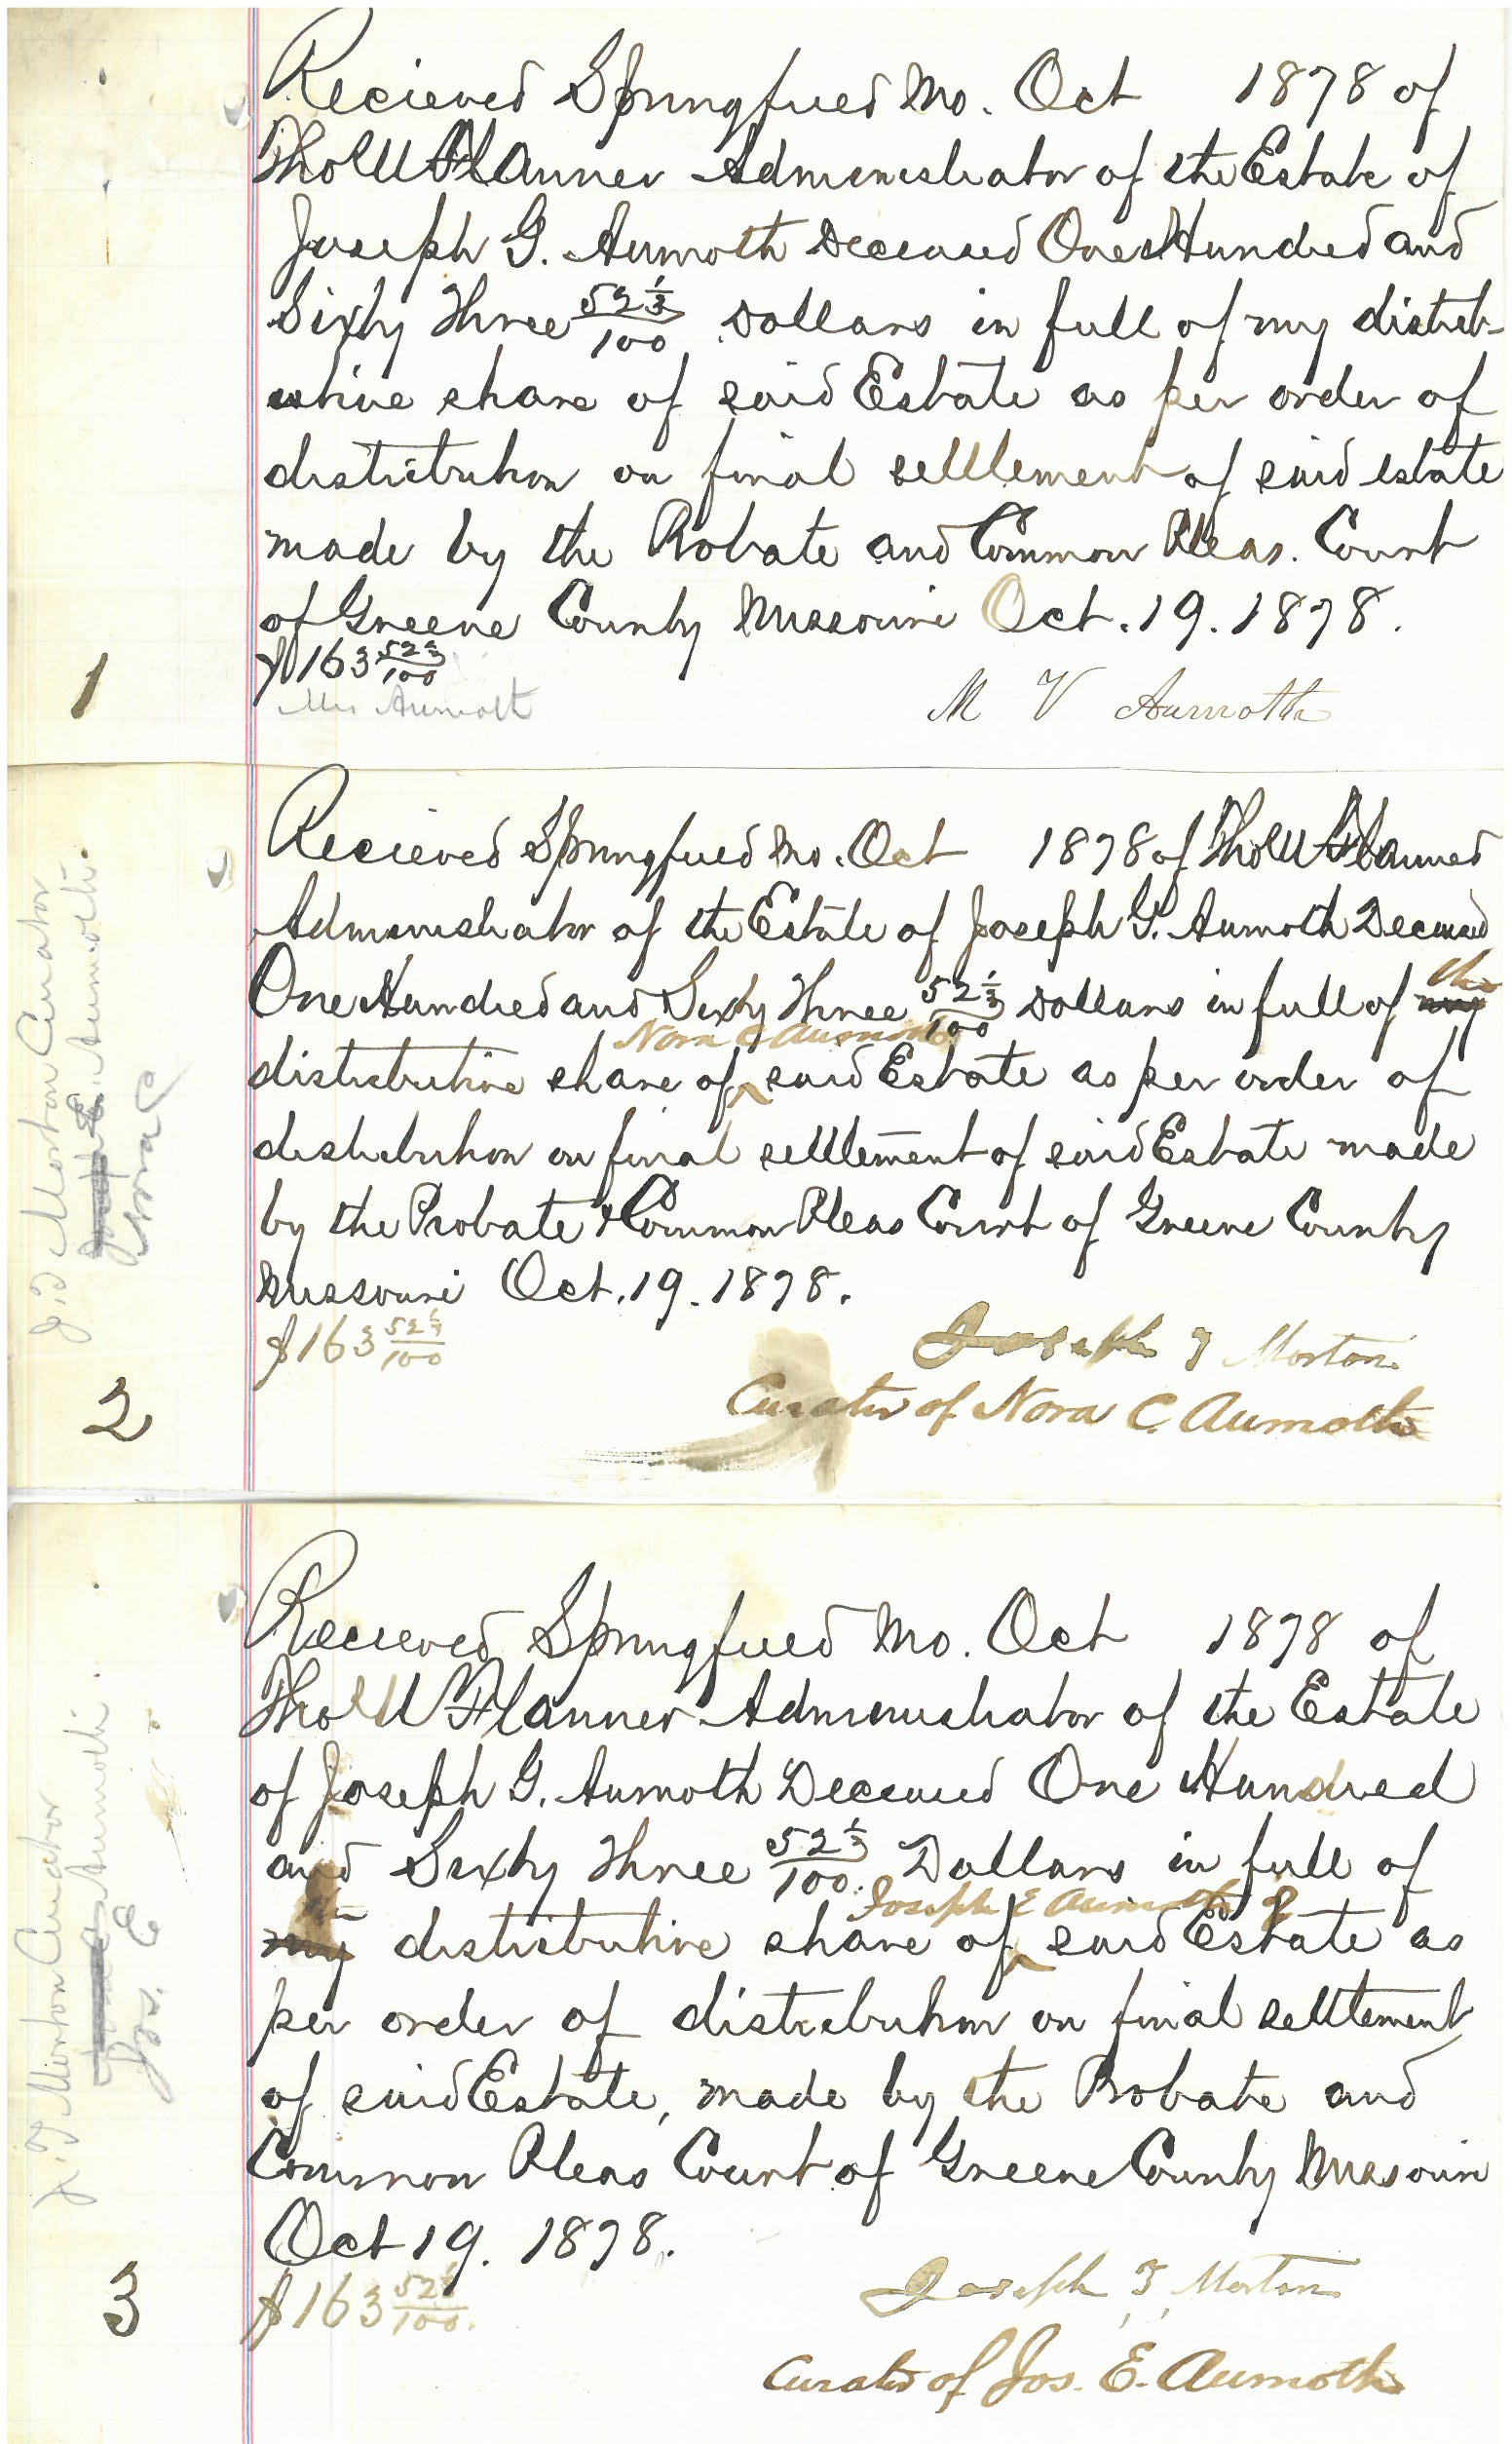 Recieved Springfield Mo. Oct 1878 of
Thos W Flanner Administrator of the Estate of
Joseph G. Aumoth Deceased One Hundred and
Sixty Three 52 1/3 / 100 Dollars in full of my distrib-
utive share of said Estate as per order of
distribution on final settlement of said estate
made by the Probate and Common Pleas. Court
of Greene County Missouri Oct. 19. 1878.
$163 52 1/3 / 100
Mrs Aumoth
M V Aumoth
1
Recieved Springfield Mo. Oct 1878 of Thos W Flanner
Administrator of the Estate of Joseph G. Aumoth Deceased
One Hundred and Sixty Three 52 1/3 / 100 Dollars in full of my the
Nora C Aumoth
distributive share of said Estate as per order of
distribution on final settlement of said Estate made
by the Probate & Common Pleas Court of Greene County
Missouri Oct. 19. 1878.
$163 52 1/3 / 100
Joseph T Morton
Curator of Nora C. Aumoth
J. T Morton Curator
Aumoth.
Nora C
2
Recieved Springfield Mo. Oct 1878 of
Thos W Flanner Administrator of the Estate
of Joseph G. Aumoth Deceased One Hundred
and Sixty Three 52 1/3 / 100. Dollars in full of
Joseph E Aumoth of
my distributive share of said Estate as
per order of distribution on final settlement
of said Estate, made by the Probate and
Common Pleas Court of Greene County Missouri
Oct 19. 1878.
$163 52 1/3 / 100.
Joseph T. Morton
Curator of Jos. E. Aumoth
J. T Morton Curator
Aumoth.
Jos. E
3